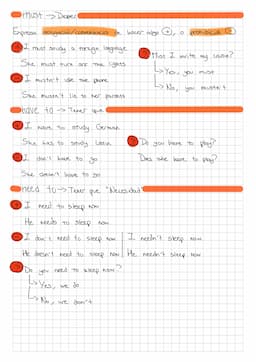 must → Deber
Expresa obligación/conveniencia de hacer algo + o prohibición
+ I must study a foreign language
She must turn off the lights
- I mustn't use the phone
She mustn't lie to her parents
? Must I write my name?
→ Yes, you must
→ No, you mustn't
have to → Tener que
+ I have to study German
She has to study Latin
- I don't have to go
She doesn't have to go
? Do you have to play?
Does she have to play?
need to → Tener que "Necesidad"
+ I need to sleep now
He needs to sleep now
- I don't need to sleep now | I needn't sleep now
He doesn't need to sleep now | He needn't sleep now
? Do you need to sleep now?
→ Yes, we do
→ No, we don't